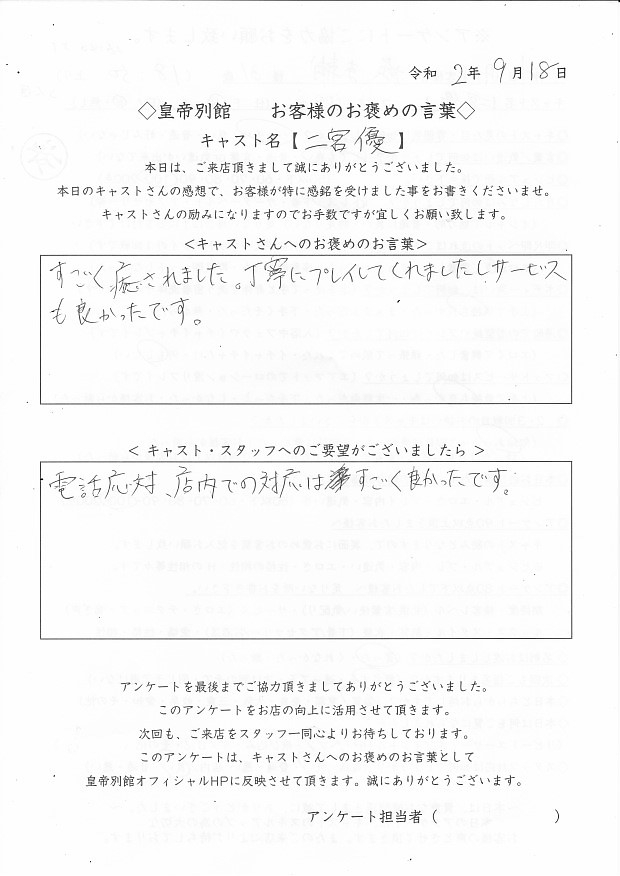 令和 2年 9月18日
◇皇帝別館 お客様のお褒めの言葉◇
キャスト名【二宮優】
本日は、ご来店頂きまして誠にありがとうございました。
本日のキャストさんの感想で、お客様が特に感銘を受けました事をお書きくださいませ。
キャストさんの励みになりますのでお手数ですが宜しくお願い致します。
<キャストさんへのお褒めのお言葉>
すごく癒されました。丁寧にプレイしてくれましたしサービス
も良かったです。
< キャスト・スタッフへのご要望がございましたら >
電話応対、店内での対応はすごく良かったです。
アンケートを最後までご協力頂きましてありがとうございました。
このアンケートをお店の向上に活用させて頂きます。
次回も、ご来店をスタッフ一同心よりお待ちしております。
このアンケートは、キャストさんへのお褒めのお言葉として
皇帝別館オフィシャルHPに反映させて頂きます。誠にありがとうございます。
アンケート担当者（ ）